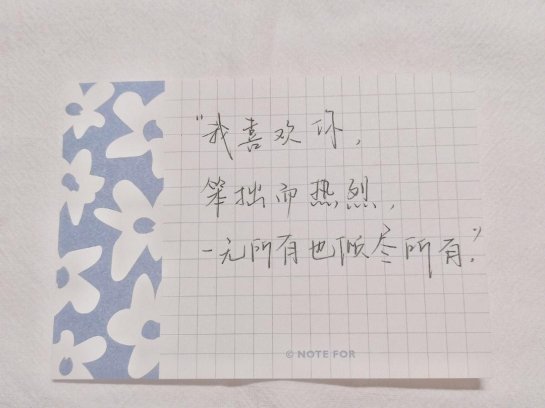 "我喜欢你，
笨拙而热烈，
一无所有也倾尽所有."
© NOTE FOR